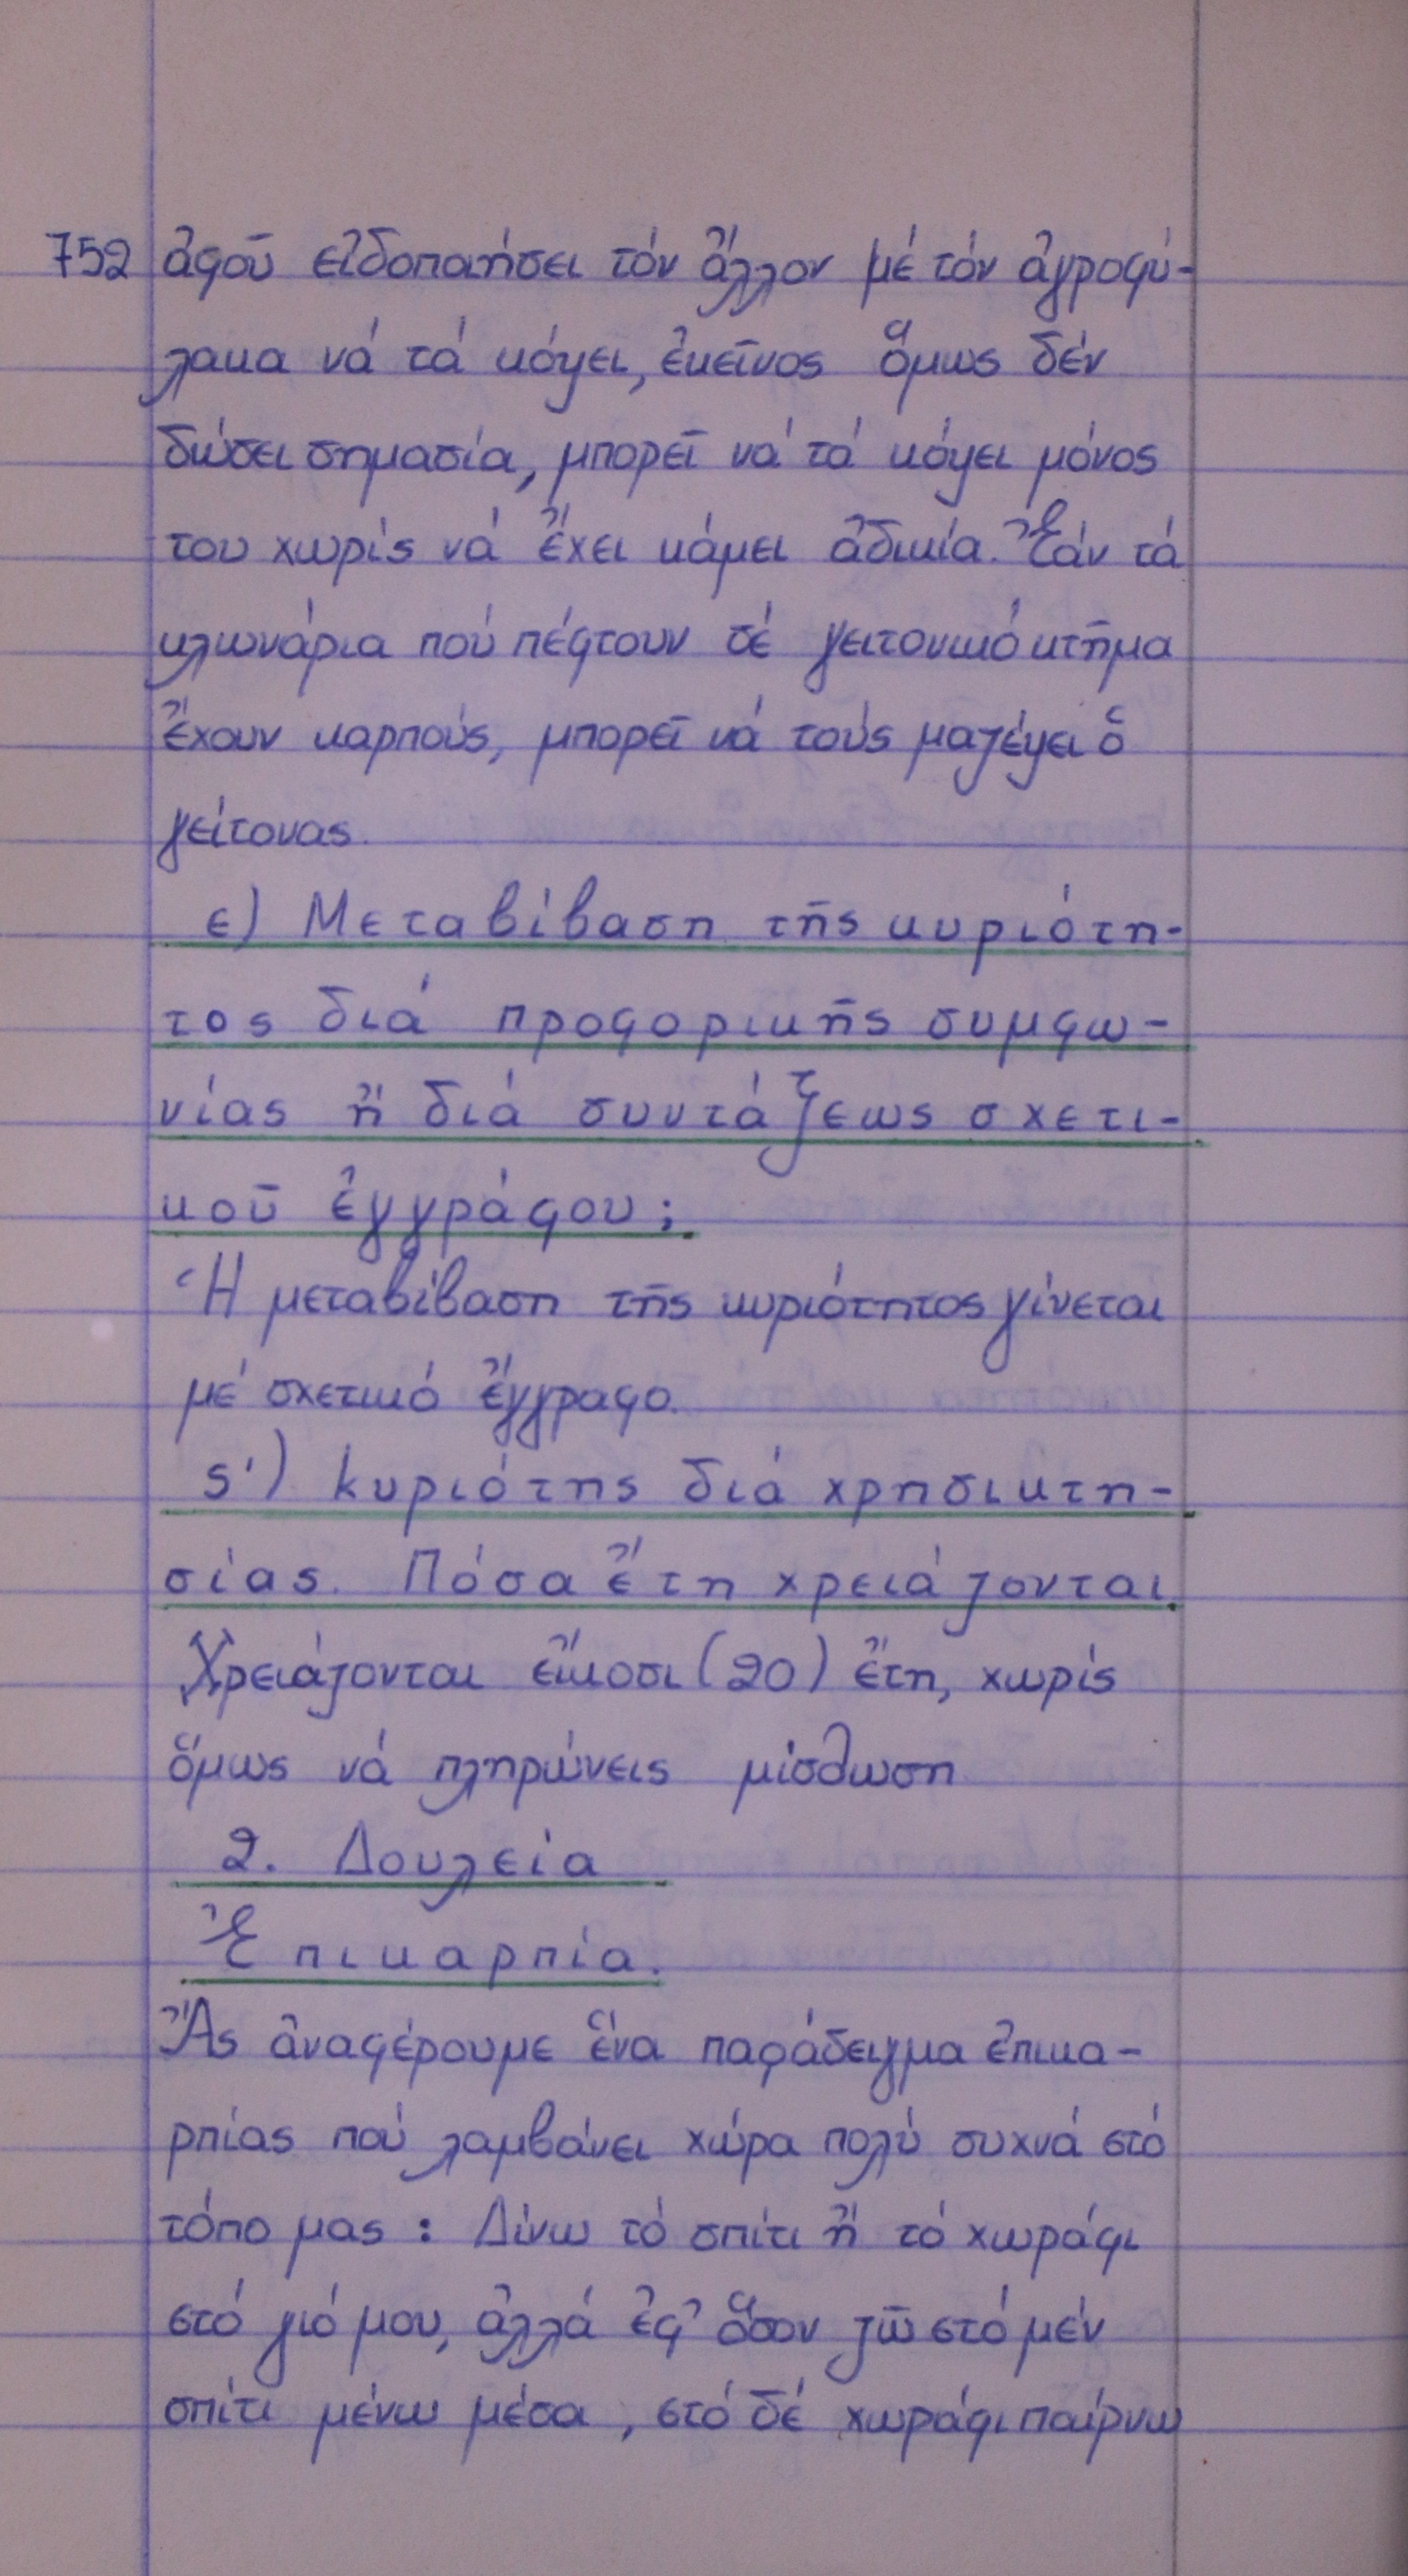 752 ἀφοῦ εἰδοποιήσει τόν ἄλλον μέ τόν ἀγροφύ-
λακα νά τά κόψει, ἐκεῖνος ὅμως δέν
δώσει σημασία, μπορεῖ νά τά κόψει μόνος
του χωρίς νά ἔχει κάμει ἀδικία. Ἐάν τά
κλωνάρια πού πέφτουν σέ γειτονικό κτῆμα
ἔχουν καρπούς, μπορεῖ νά τούς μαζέψει ὁ
γείτονας.
ε) Μεταβίβαση τῆς κυριότη-
τος διά προφορικῆς συμφω-
νίας ἤ διά συντάξεως σχετι-
κοῦ ἐγγράφου;
Ἡ μεταβίβαση τῆς κυριότητος γίνεται
μέ σχετικό ἔγγραφο.
ς') Κυριότης διά χρησικτη-
σίας. Πόσα ἔτη χρειάζονται.
Χρειάζονται εἴκοσι (20) ἔτη, χωρίς
ὅμως νά πληρώνεις μίσθωση
2. Δουλεία
Ἐπικαρπία.
Ἄς ἀναφέρουμε ἕνα παράδειγμα ἐπικα-
ρπίας πού λαμβάνει χώρα πολύ συχνά στό
τόπο μας : Δίνω τό σπίτι ἤ τό χωράφι
στό γιό μου, ἀλλά ἐφ' ὅσον ζῶ στό μέν
σπίτι μένω μέσα, στό δέ χωράφι παίρνω